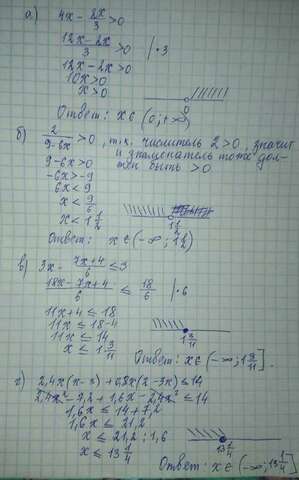 а) 4x - 2x/3 > 0
(12x - 2x)/3 > 0 | · 3
12x - 2x > 0
10x > 0
x > 0
0
Ответ: x ∈ (0; +∞)
б) 2/(9-6x) > 0, т.к. числитель 2>0, значит
и знаменатель тоже дол-
9-6x>0 жен быть >0
-6x>-9
6x<9
x < 9/6
x < 1 1/2
1 1/2
Ответ: x ∈ (-∞; 1 1/2)
в) 3x - (7x+4)/6 ≤ 3
(18x - 7x+4)/6 ≤ 18/6 | · 6
11x + 4 ≤ 18
11x ≤ 18-4
11x ≤ 14
x ≤ 1 3/11
1 3/11
Ответ: x ∈ (-∞; 1 3/11].
г) 2,4x(x-3) + 0,8x(2-3x) ≤ 14
2,4x² - 7,2 + 1,6x - 2,4x² ≤ 14
1,6x ≤ 14 + 7,2
1,6x ≤ 21,2
x ≤ 21,2 : 1,6
x ≤ 13 1/4
13 1/4
Ответ: x ∈ (-∞; 13 1/4].